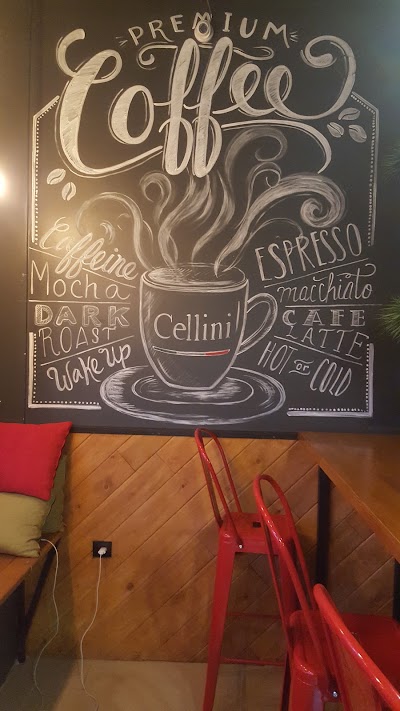 PREMIUM
Coffee
Caffeine
Mocha
DARK
ROAST
Wake Up
Cellini
ESPRESSO
macchiato
CAFE
LATTE
HOT or COLD